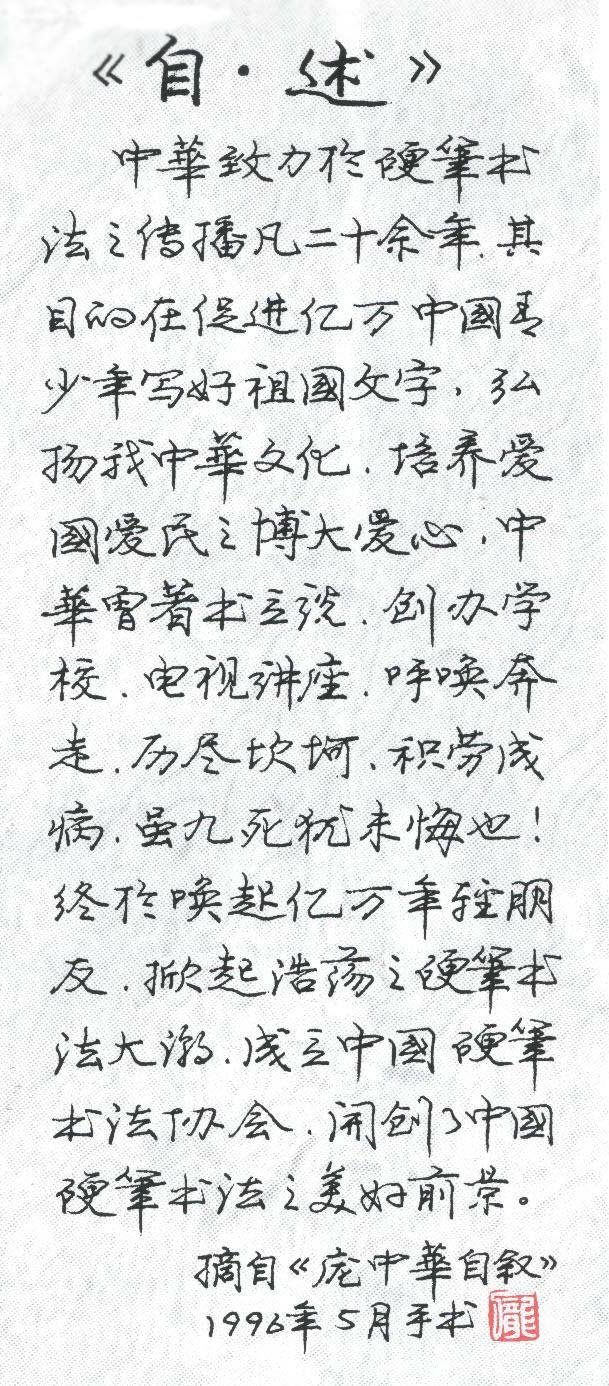 《自·述》
中華致力於硬筆书
法之传播凡二十余年.其
目的在促进亿万中國青
少年写好祖國文字,弘
扬我中華文化.培养爱
國爱民之博大爱心,中
華曾著书立说.创办学
校.电视讲座.呼唤奔
走.历尽坎坷.积劳成
病.虽九死犹未悔也!
终於唤起亿万年轻朋
友.掀起浩荡之硬筆书
法大潮.成立中國硬筆
书法协会.开创了中國
硬筆书法之美好前景。
摘自《庞中華自叙》
1996年5月手书
龐